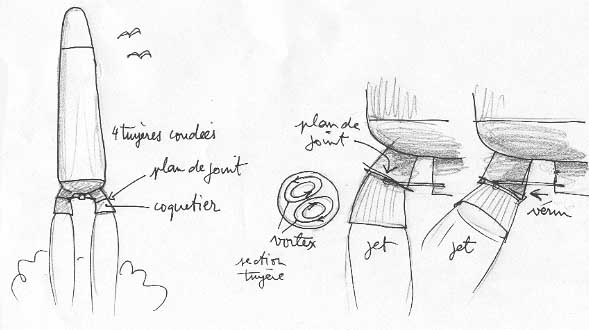 4 tuyères coudées
plan de joint
coquetier
plan de
joint
vortex
section
tuyère
jet
jet
vérin